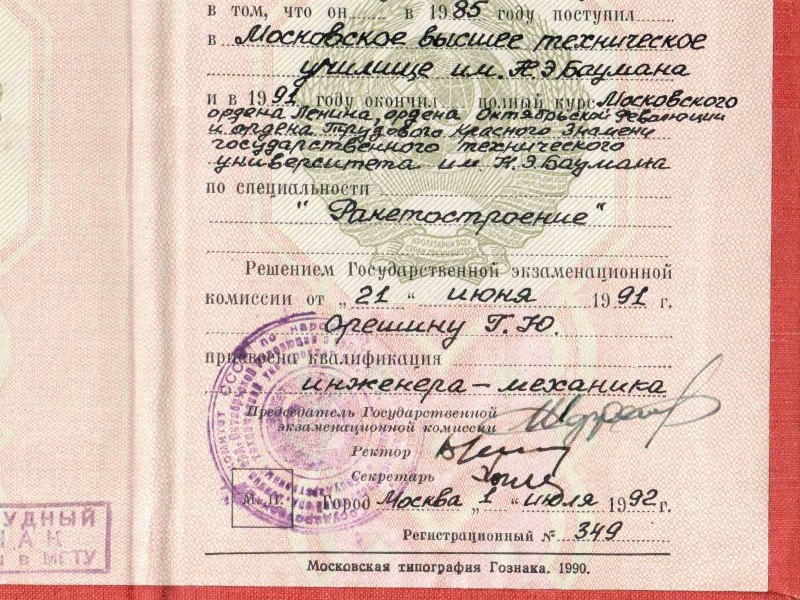 в том, что он в 1985 году поступил
в Московское высшее техническое
училище им. Н.Э.Баумана
и в 1991 году окончил полный курс Московского
ордена Ленина, ордена Октябрьской Революции
и ордена Трудового Красного Знамени
государственного технического
университета им. Н.Э.Баумана
по специальности
"Ракетостроение"
ПРОЛЕТАРИИ ВСЕХ
Решением Государственной экзаменационной
комиссии от „21“ июня 1991 г.
Орешину Г.Ю.
присвоена квалификация
инженера-механика
Председатель Государственной
экзаменационной комиссии
Ректор
Секретарь
М. П.
Город Москва „1“ июля 1992 г.
Регистрационный № 349
Московская типография Гознака. 1990.
УДНЫЙ
НАК
в МГТУ